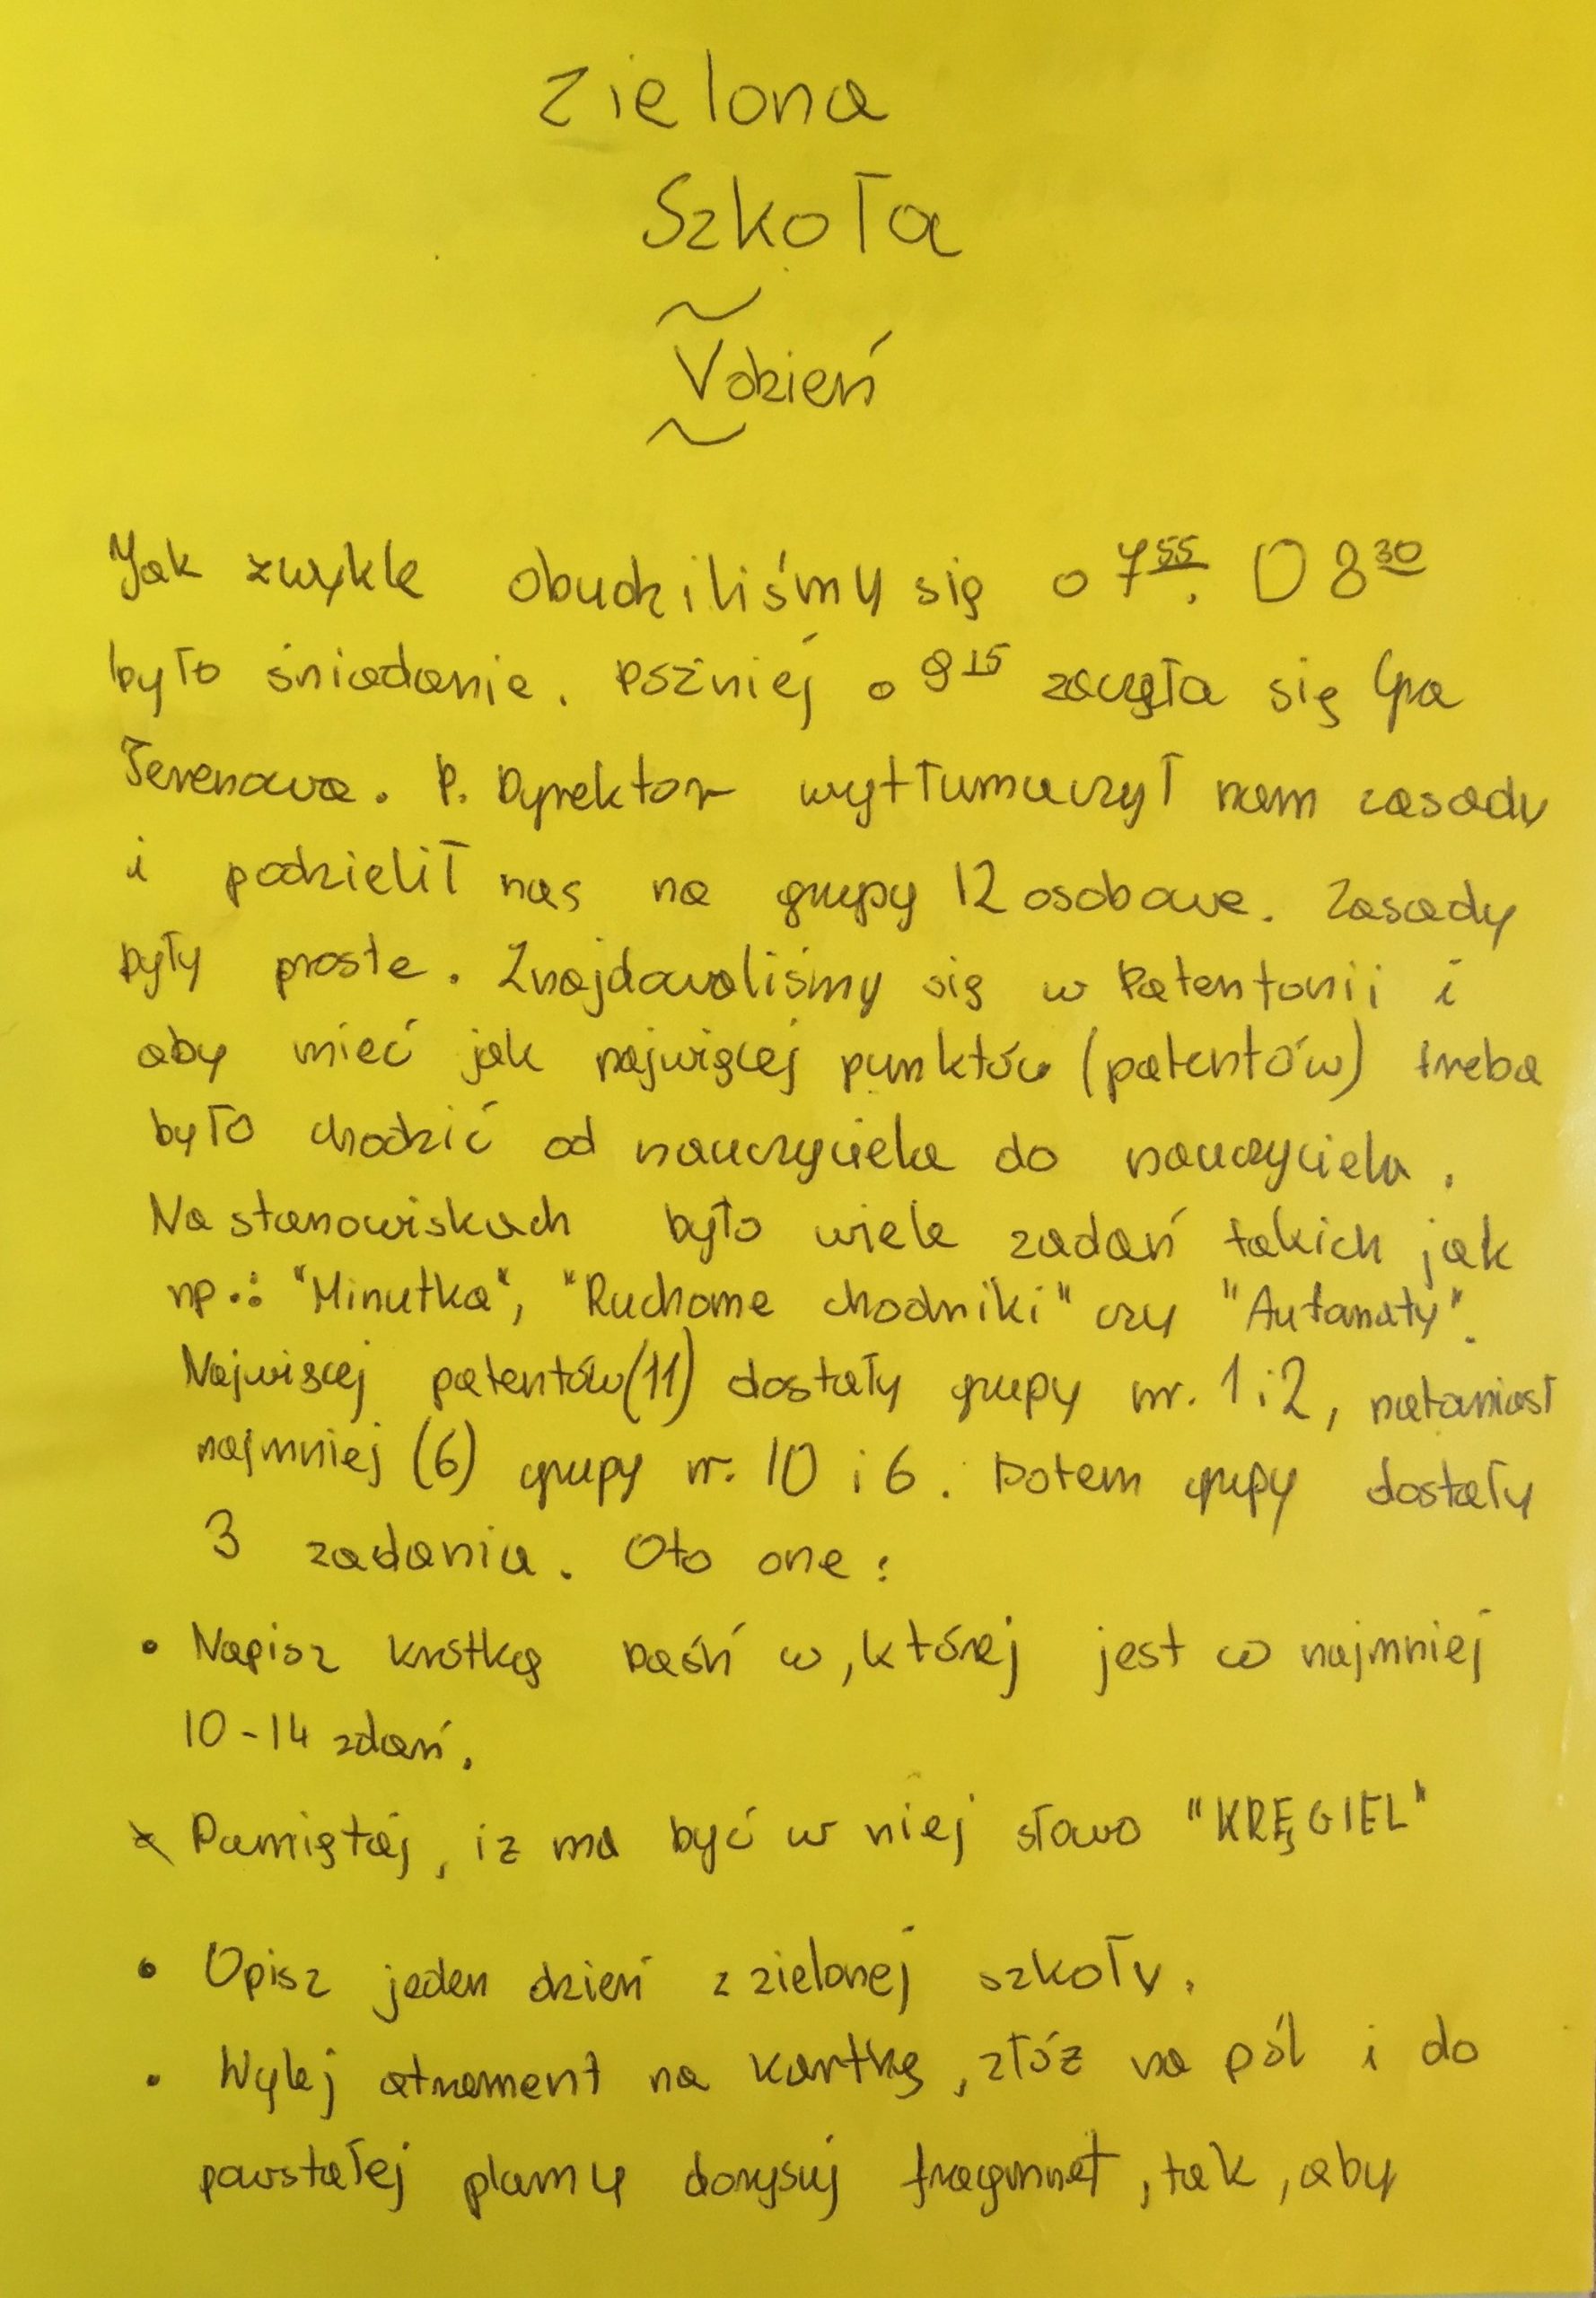 Zielona
Szkoła
~
V dzień
~
Jak zwykle obudziliśmy się o 7⁵⁵. O 8³⁰
było śniadanie. Później o 9¹⁵ zaczęła się Gra
Terenowa. P. Dyrektor wytłumaczył nam zasady
i podzielił nas na grupy 12 osobowe. Zasady
były proste. Znajdowaliśmy się w Patentonii i
aby mieć jak najwięcej punktów (patentów) treba
było chodzić od nauczyciela do nauczyciela.
Na stanowiskach było wiele zadań takich jak
np.: "Minutka", "Ruchome chodniki" czy "Automaty".
Najwięcej patentów (11) dostały grupy nr. 1 i 2, natomiast
najmniej (6) grupy nr. 10 i 6. Potem grupy dostały
3 zadania. Oto one:
• Napisz krótką baśń w, której jest co najmniej
10-14 zdań.
* Pamiętaj, iz ma być w niej słowo "KRĘGIEL"
• Opisz jeden dzień z zielonej szkoły.
• Wylej atrament na kartkę, złóż na pół i do
powstałej plamy dorysuj fragmnet, tak, aby